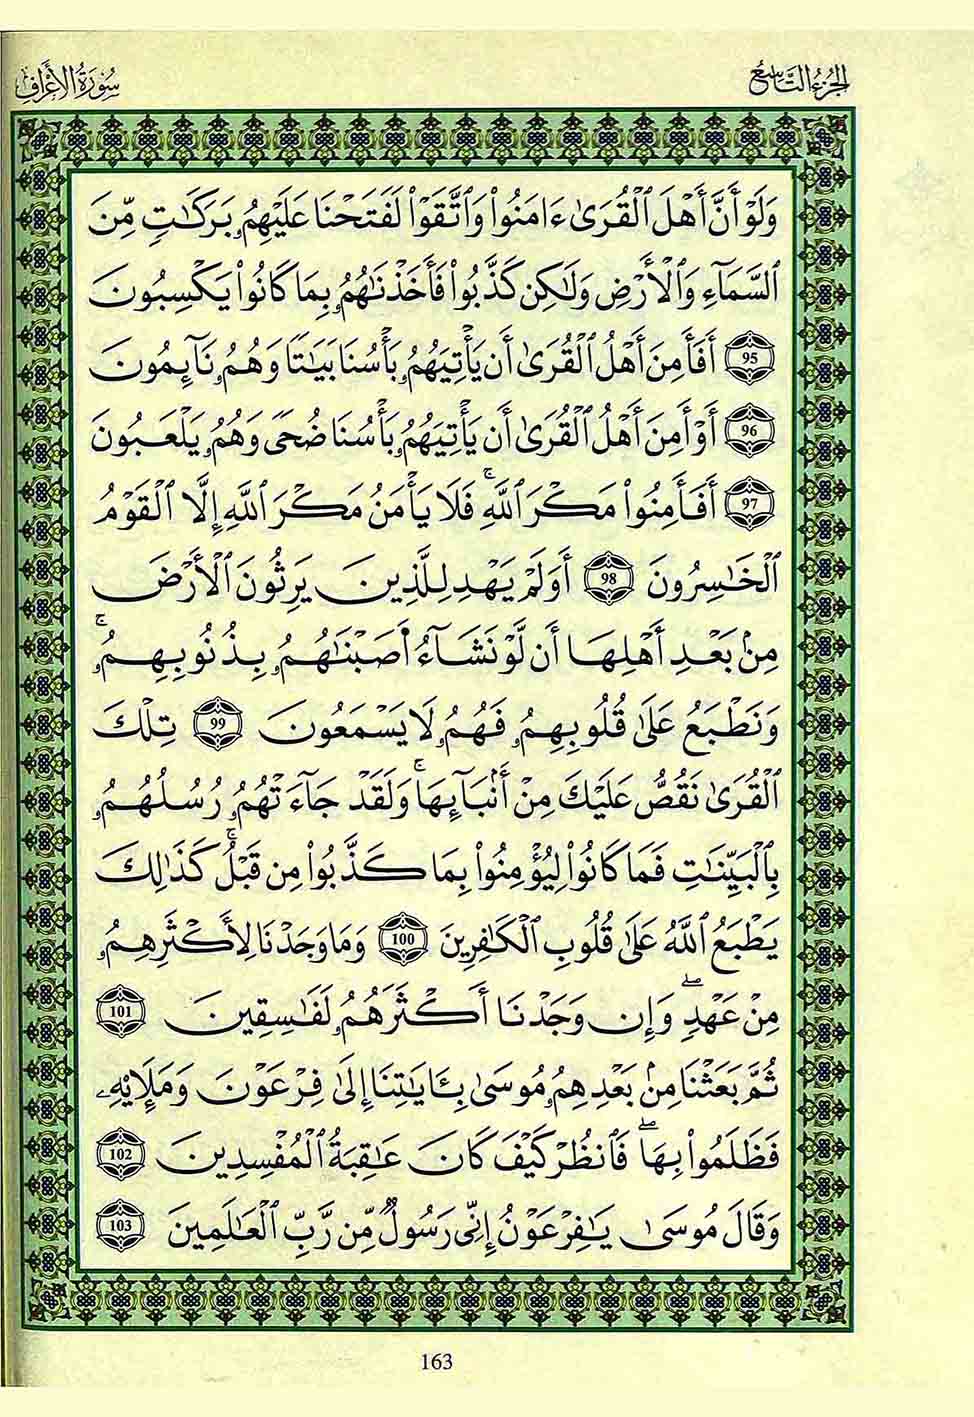 الجزء التاسع
سورة الأعراف
وَلَوْ أَنَّ أَهْلَ ٱلْقُرَىٰ ءَامَنُوا۟ وَٱتَّقَوْا۟ لَفَتَحْنَا عَلَيْهِمُۥ بَرَكَٰتٍ مِّنَ
ٱلسَّمَآءِ وَٱلْأَرْضِ وَلَٰكِن كَذَّبُوا۟ فَأَخَذْنَٰهُمُۥ بِمَا كَانُوا۟ يَكْسِبُونَ
95 أَفَأَمِنَ أَهْلُ ٱلْقُرَىٰ أَن يَأْتِيَهُمُۥ بَأْسُنَا بَيَٰتًا وَهُمُۥ نَآئِمُونَ
96 أَوْ أَمِنَ أَهْلُ ٱلْقُرَىٰ أَن يَأْتِيَهُمُۥ بَأْسُنَا ضُحًى وَهُمُۥ يَلْعَبُونَ
97 أَفَأَمِنُوا۟ مَكْرَ ٱللَّهِ ۚ فَلَا يَأْمَنُ مَكْرَ ٱللَّهِ إِلَّا ٱلْقَوْمُ
ٱلْخَٰسِرُونَ 98 أَوَلَمْ يَهْدِ لِلَّذِينَ يَرِثُونَ ٱلْأَرْضَ
مِنۢ بَعْدِ أَهْلِهَا أَن لَّوْ نَشَآءُ أَصَبْنَٰهُمُۥ بِذُنُوبِهِمُۥ ۚ
وَنَطْبَعُ عَلَىٰ قُلُوبِهِمُۥ فَهُمُۥ لَا يَسْمَعُونَ 99 تِلْكَ
ٱلْقُرَىٰ نَقُصُّ عَلَيْكَ مِنْ أَنۢبَآئِهَا ۚ وَلَقَدْ جَآءَتْهُمُۥ رُسُلُهُمُۥ
بِٱلْبَيِّنَٰتِ فَمَا كَانُوا۟ لِيُؤْمِنُوا۟ بِمَا كَذَّبُوا۟ مِن قَبْلُ ۚ كَذَٰلِكَ
يَطْبَعُ ٱللَّهُ عَلَىٰ قُلُوبِ ٱلْكَٰفِرِينَ 100 وَمَا وَجَدْنَا لِأَكْثَرِهِمُۥ
مِنْ عَهْدٍ ۖ وَإِن وَجَدْنَا أَكْثَرَهُمُۥ لَفَٰسِقِينَ 101
ثُمَّ بَعَثْنَا مِنۢ بَعْدِهِمُۥ مُوسَىٰ بِـَٔايَٰتِنَا إِلَىٰ فِرْعَوْنَ وَمَلَإِيْهِۦ
فَظَلَمُوا۟ بِهَا ۖ فَٱنظُرْ كَيْفَ كَانَ عَٰقِبَةُ ٱلْمُفْسِدِينَ 102
وَقَالَ مُوسَىٰ يَٰفِرْعَوْنُ إِنِّى رَسُولٌ مِّن رَّبِّ ٱلْعَٰلَمِينَ 103
163